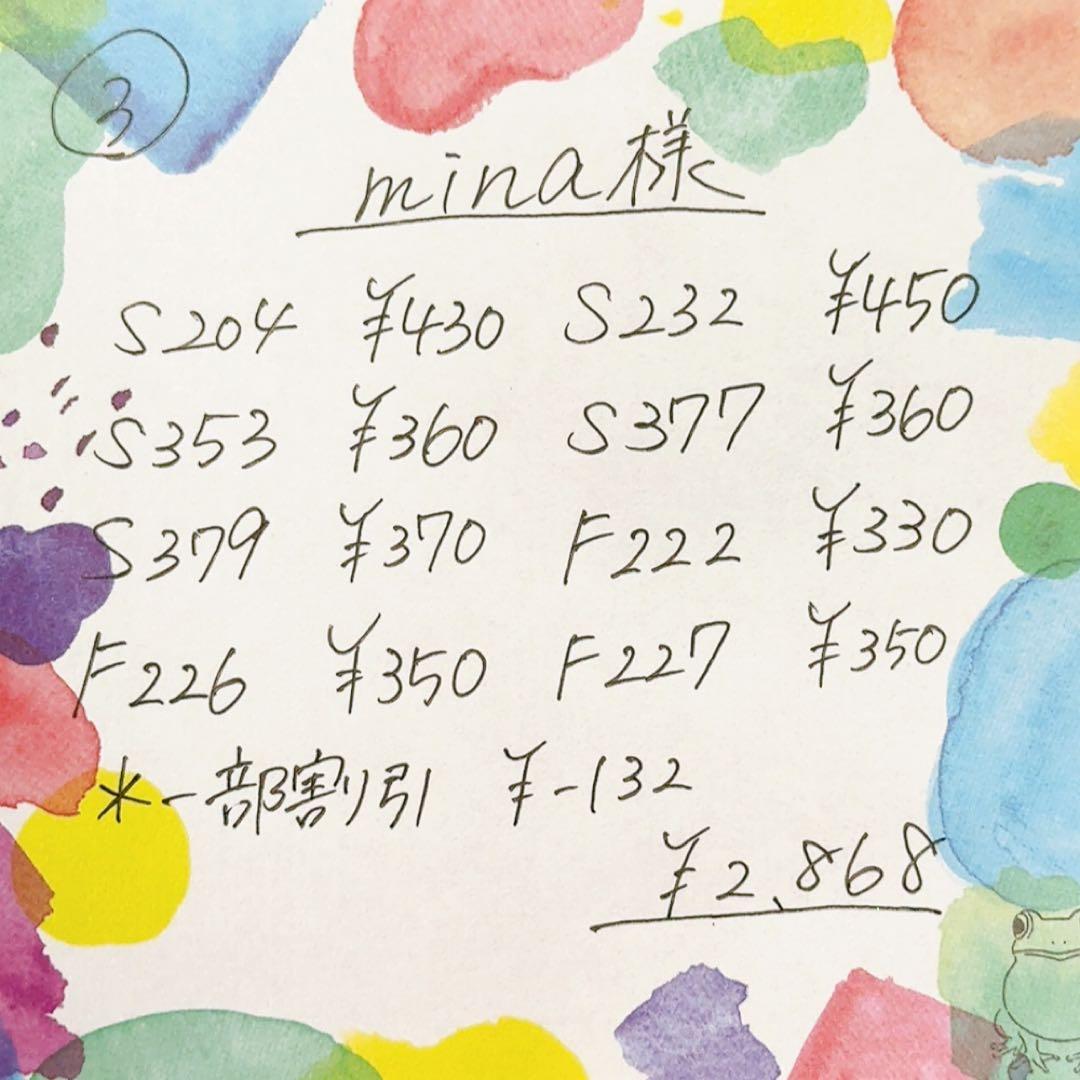 ③
mina様
S204 ¥430 S232 ¥450
S353 ¥360 S377 ¥360
S379 ¥370 F222 ¥330
F226 ¥350 F227 ¥350
*一部割り引 ¥-132
¥2,868